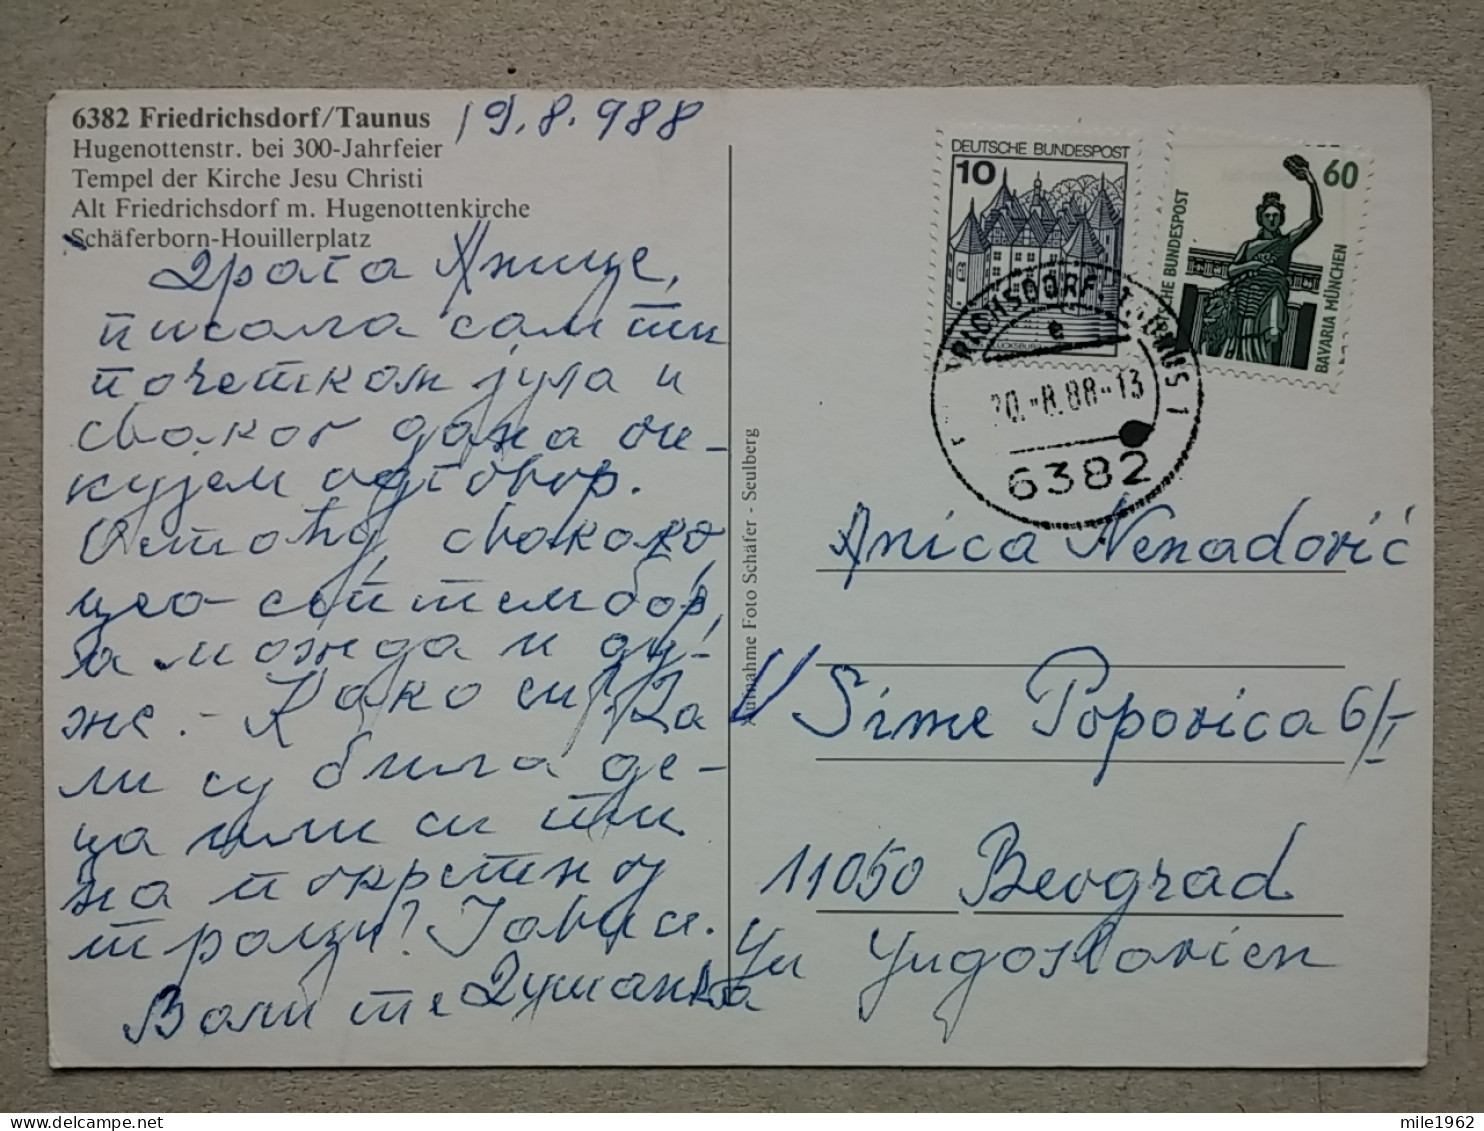 6382 Friedrichsdorf/Taunus 19.8.988
Hugenottenstr. bei 300-Jahrfeier
Tempel der Kirche Jesu Christi
Alt Friedrichsdorf m. Hugenottenkirche
Schäferborn-Houillerplatz
Драга Анице,
писала сам ти
почетком јула и
сваког дана оче-
кујем одговор.
Остаћу свакако
цео септембар,
а можда и ду-
же. - Како си? Да
ли су била де-
ца или си ти
на покретној
траци? Јави се.
Воли те Душанка
Aufnahme Foto Schäfer - Seulberg
DEUTSCHE BUNDESPOST
10
60
BUNDESPOST
BAVARIA MÜNCHEN
20.-8.88-13
e
6382
Anica Nenadović
Sime Popovica 6/I
11050 Beograd
Yu Yugoslavien
mile1962